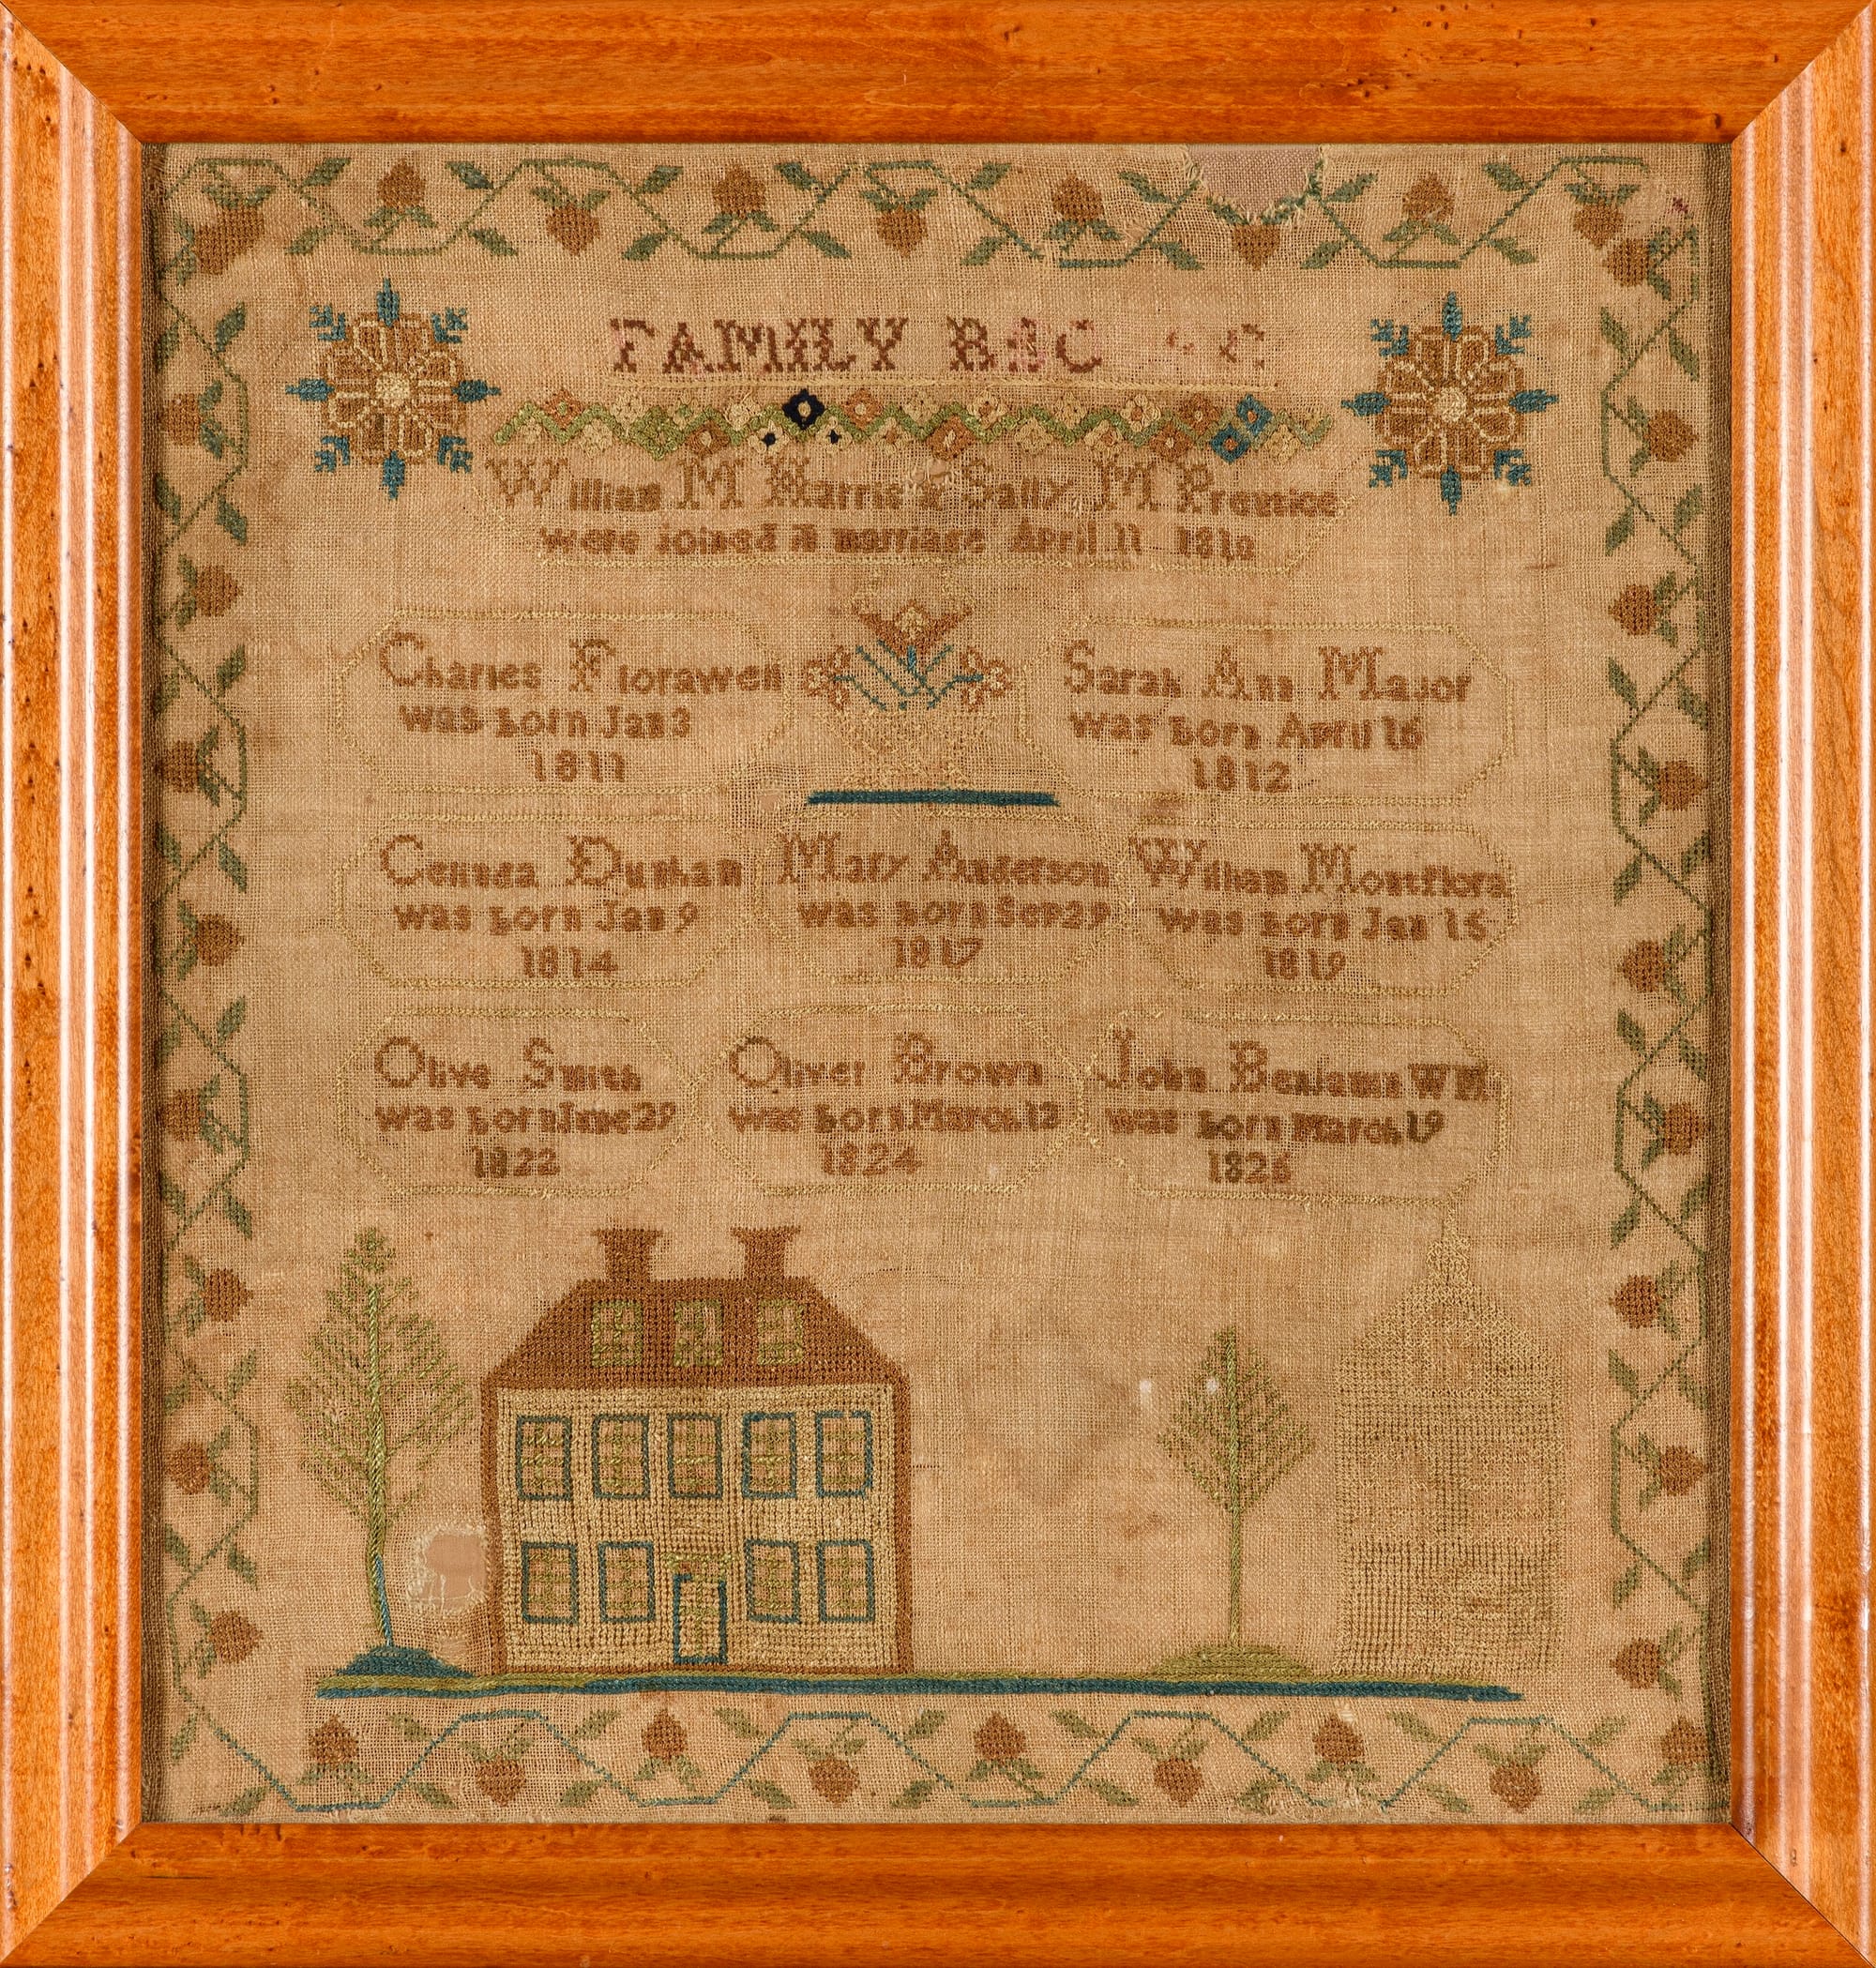 FAMILY REC
William M Harris & Sally M Prentice
were joined in marriage April 11 1810
Charles Florawell
was born Jan 3
1811
Sarah Ann Major
was born April 16
1812
Dunham
was born Jan 9
1814
Mary Anderson
was born Sep 29
1817
William Montflora
was born Jan 15
1819
Olive Smith
was born June 29
1822
Oliver Brown
was born March 13
1824
John Benjamin W H
was born March 19
1826